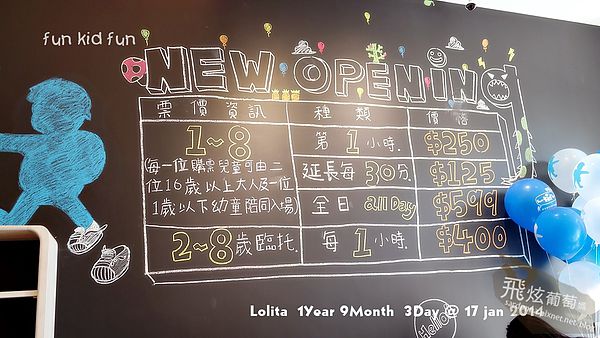 fun kid fun
NEW OPENING
票價資訊 種類 價格
1~8
(每一位購票兒童可由二
位16歲以上大人及一位
1歲以下幼童陪同入場)
第1小時. $250
延長每30分. $125
全日 all Day $599
2~8歲臨托. 每1小時. $400
Hello
飛炫葡萄
Lolita 1Year 9Month 3Day @ 17 jan 2014